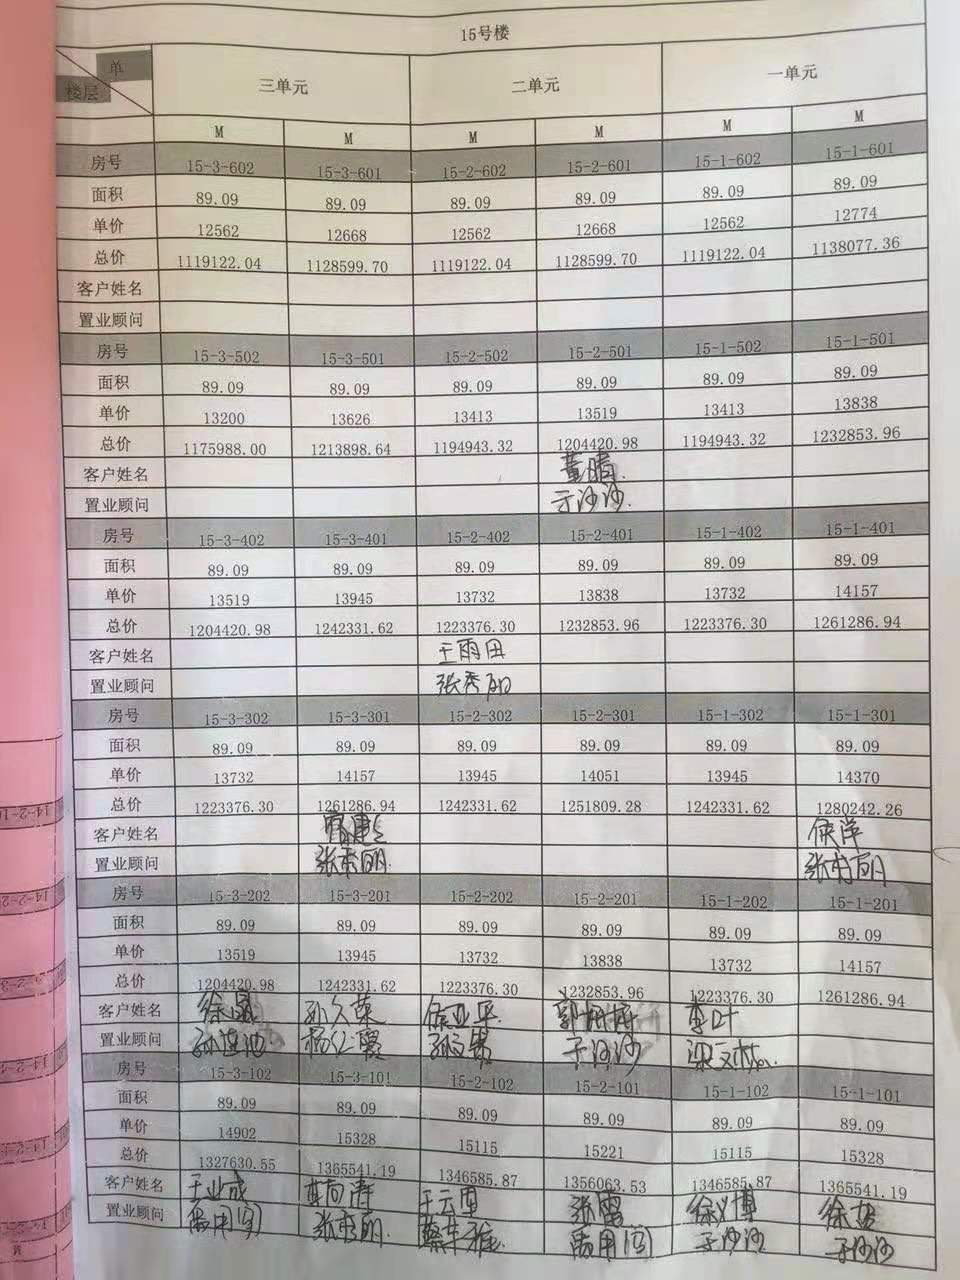 15号楼
单
楼层 三单元 二单元 一单元
M M M M M M
房号 15-3-602 15-3-601 15-2-602 15-2-601 15-1-602 15-1-601
面积 89.09 89.09 89.09 89.09 89.09 89.09
单价 12562 12668 12562 12668 12562 12774
总价 1119122.04 1128599.70 1119122.04 1128599.70 1119122.04 1138077.36
客户姓名
置业顾问
房号 15-3-502 15-3-501 15-2-502 15-2-501 15-1-502 15-1-501
面积 89.09 89.09 89.09 89.09 89.09 89.09
单价 13200 13626 13413 13519 13413 13838
总价 1175988.00 1213898.64 1194943.32 1204420.98 1194943.32 1232853.96
客户姓名 董晴
置业顾问 于沙沙
房号 15-3-402 15-3-401 15-2-402 15-2-401 15-1-402 15-1-401
面积 89.09 89.09 89.09 89.09 89.09 89.09
单价 13519 13945 13732 13838 13732 14157
总价 1204420.98 1242331.62 1223376.30 1232853.96 1223376.30 1261286.94
客户姓名 王雨田
置业顾问 张秀丽
房号 15-3-302 15-3-301 15-2-302 15-2-301 15-1-302 15-1-301
面积 89.09 89.09 89.09 89.09 89.09 89.09
单价 13732 14157 13945 14051 13945 14370
总价 1223376.30 1261286.94 1242331.62 1251809.28 1242331.62 1280242.26
客户姓名 侯洋
置业顾问 张秀丽 张秀丽
房号 15-3-202 15-3-201 15-2-202 15-2-201 15-1-202 15-1-201
面积 89.09 89.09 89.09 89.09 89.09 89.09
单价 13519 13945 13732 13838 13732 14157
总价 1204420.98 1242331.62 1223376.30 1232853.96 1223376.30 1261286.94
客户姓名 徐晨 孙久荣 侯亚平 李叶
置业顾问 于沙沙
房号 15-3-102 15-3-101 15-2-102 15-2-101 15-1-102 15-1-101
面积 89.09 89.09 89.09 89.09 89.09 89.09
单价 14902 15328 15115 15221 15115 15328
总价 1327630.55 1365541.19 1346585.87 1356063.53 1346585.87 1365541.19
客户姓名 王业成 张雷 徐义博
置业顾问 张秀丽 于沙沙 于沙沙